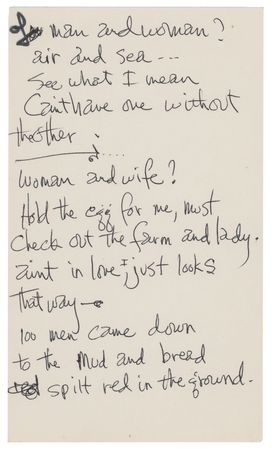 man and woman?
air and sea ---
See what I mean
Can't have one without
the other
....
Woman and wife?
Hold the egg for me, must
Check out the farm and lady.
aint in love, just looks
that way —
100 men came down
to the mud and bread
spilt red in the ground.